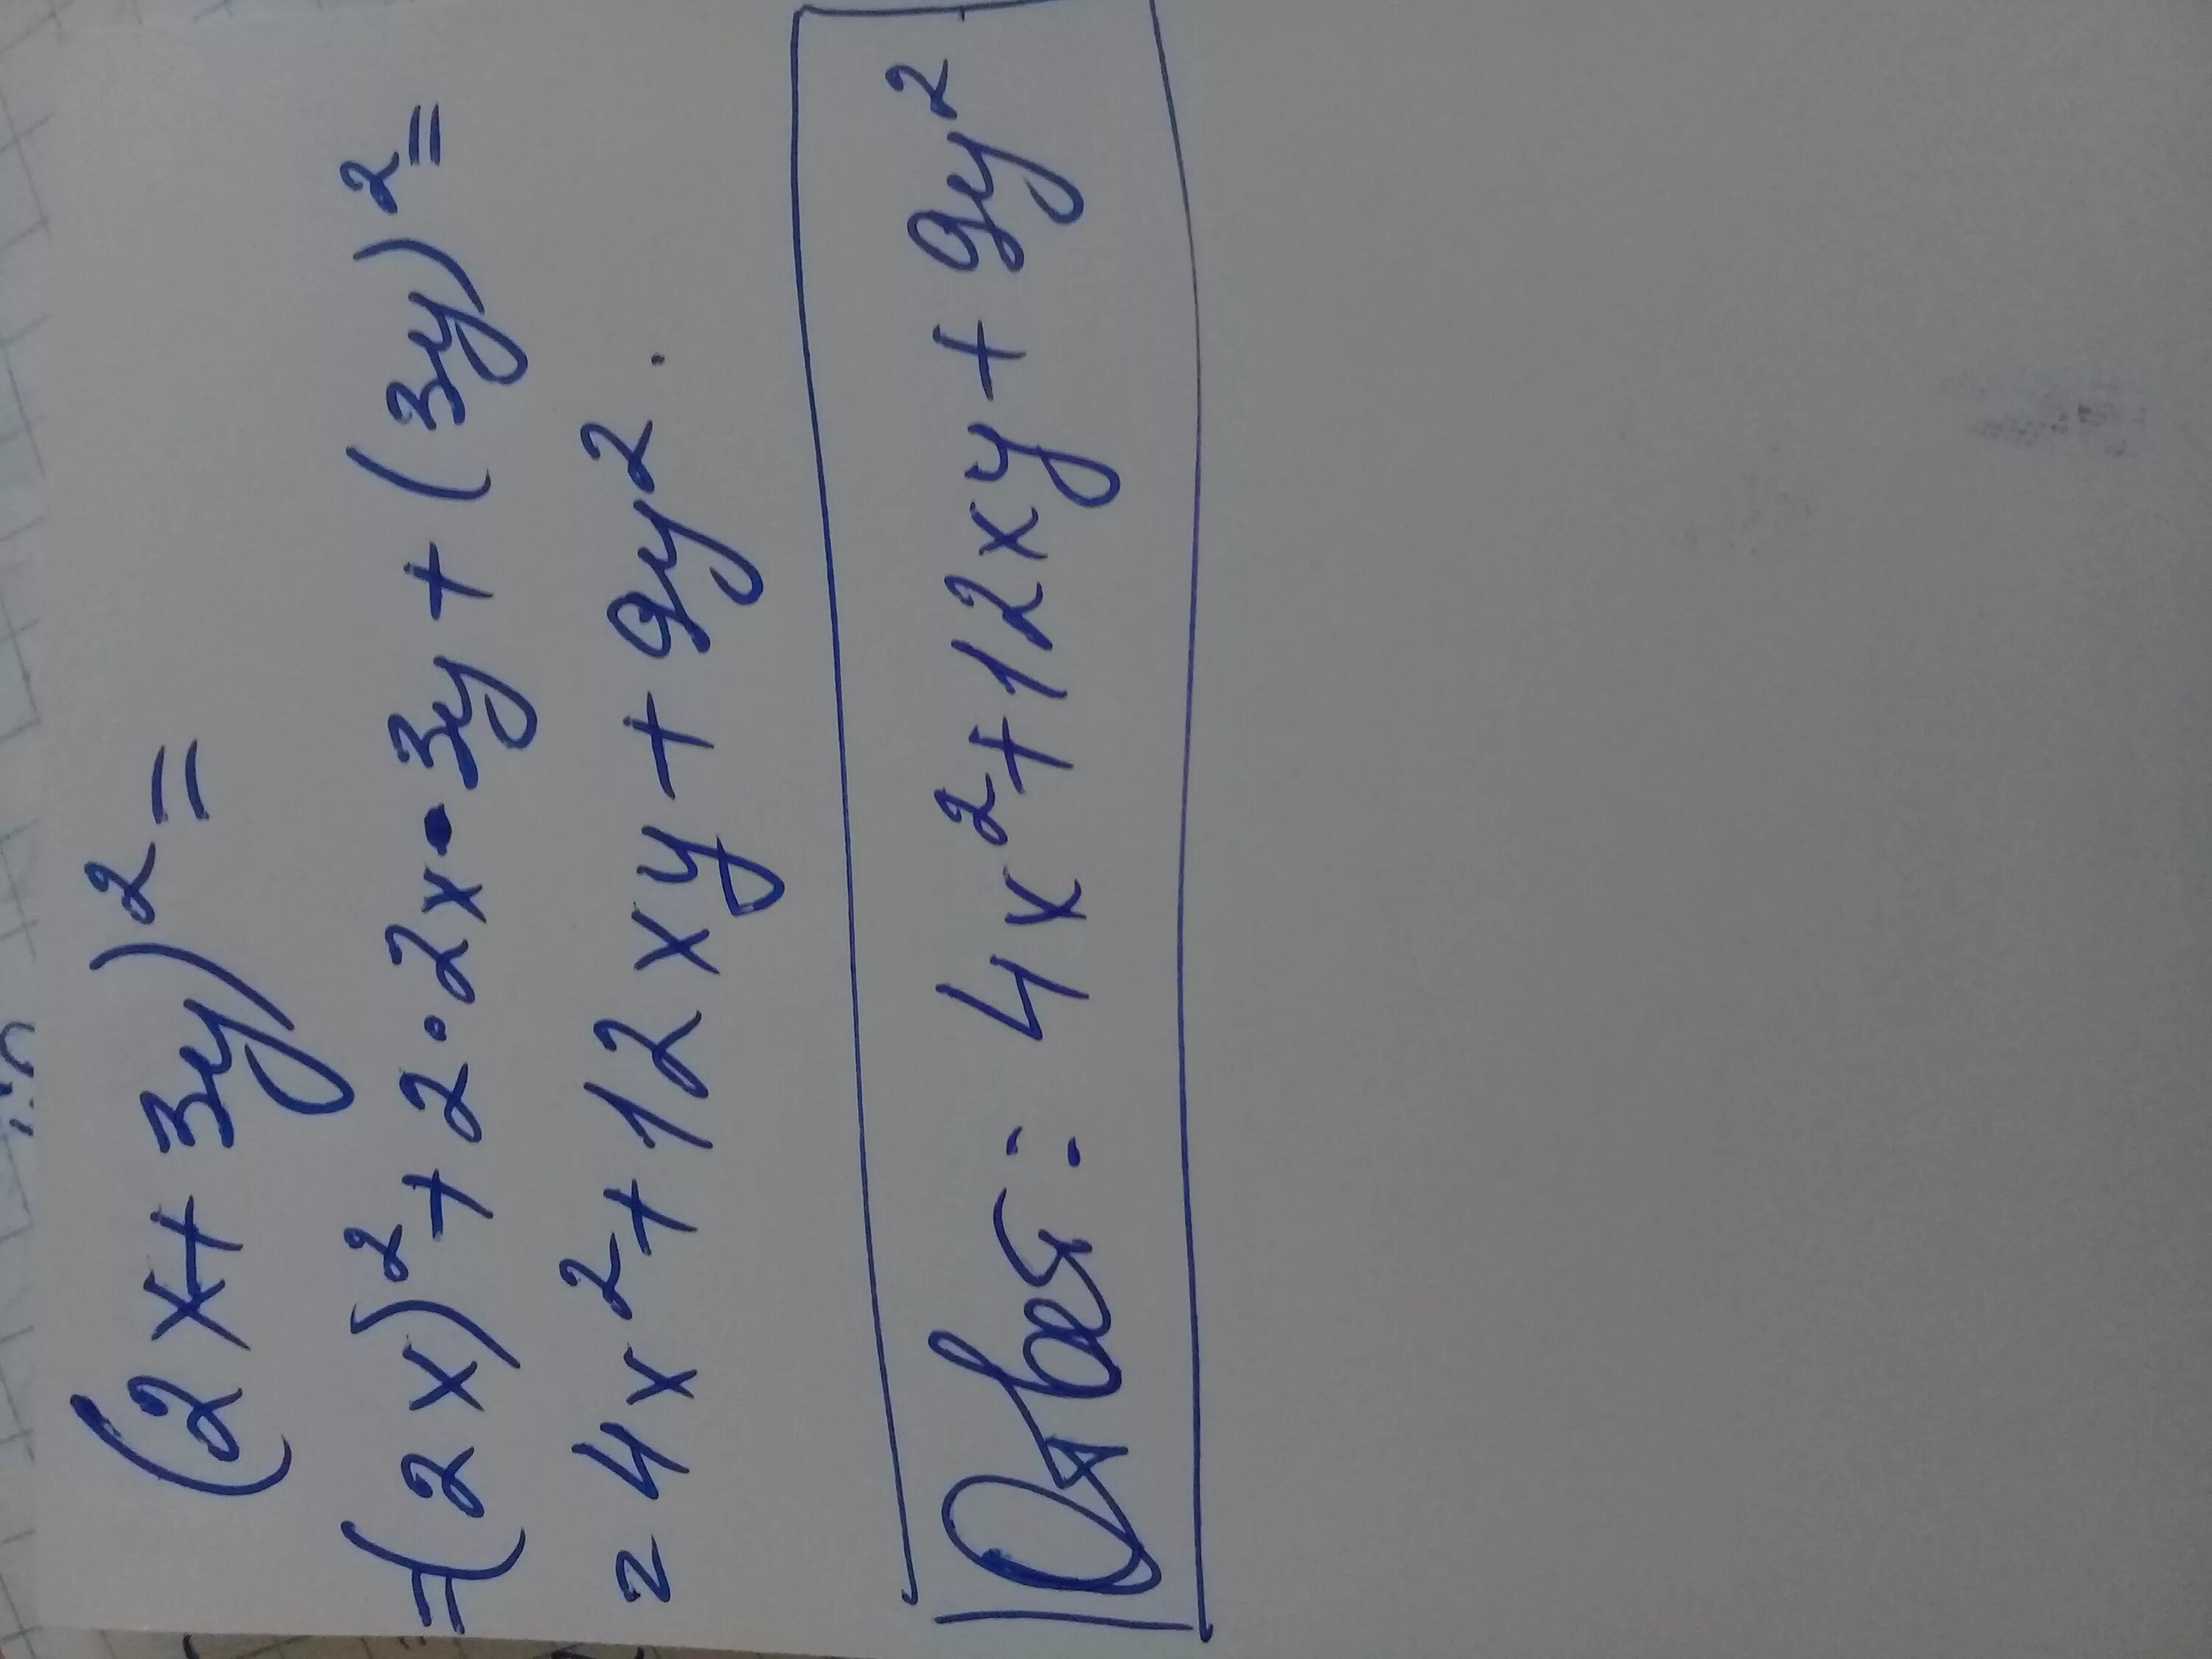 (2x+3y)²=
=(2x)²+2·2x·3y+(3y)²=
=4x²+12xy+9y².
Ответ: 4x²+12xy+9y²